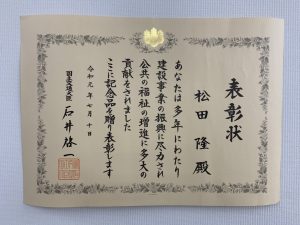 表彰状
松田隆殿
あなたは多年にわたり
建設事業の振興に尽力され
公共の福祉の増進に多大の
貢献をされました
ここに記念品を贈り表彰します
令和元年七月十日
国土交通大臣 石井啓一